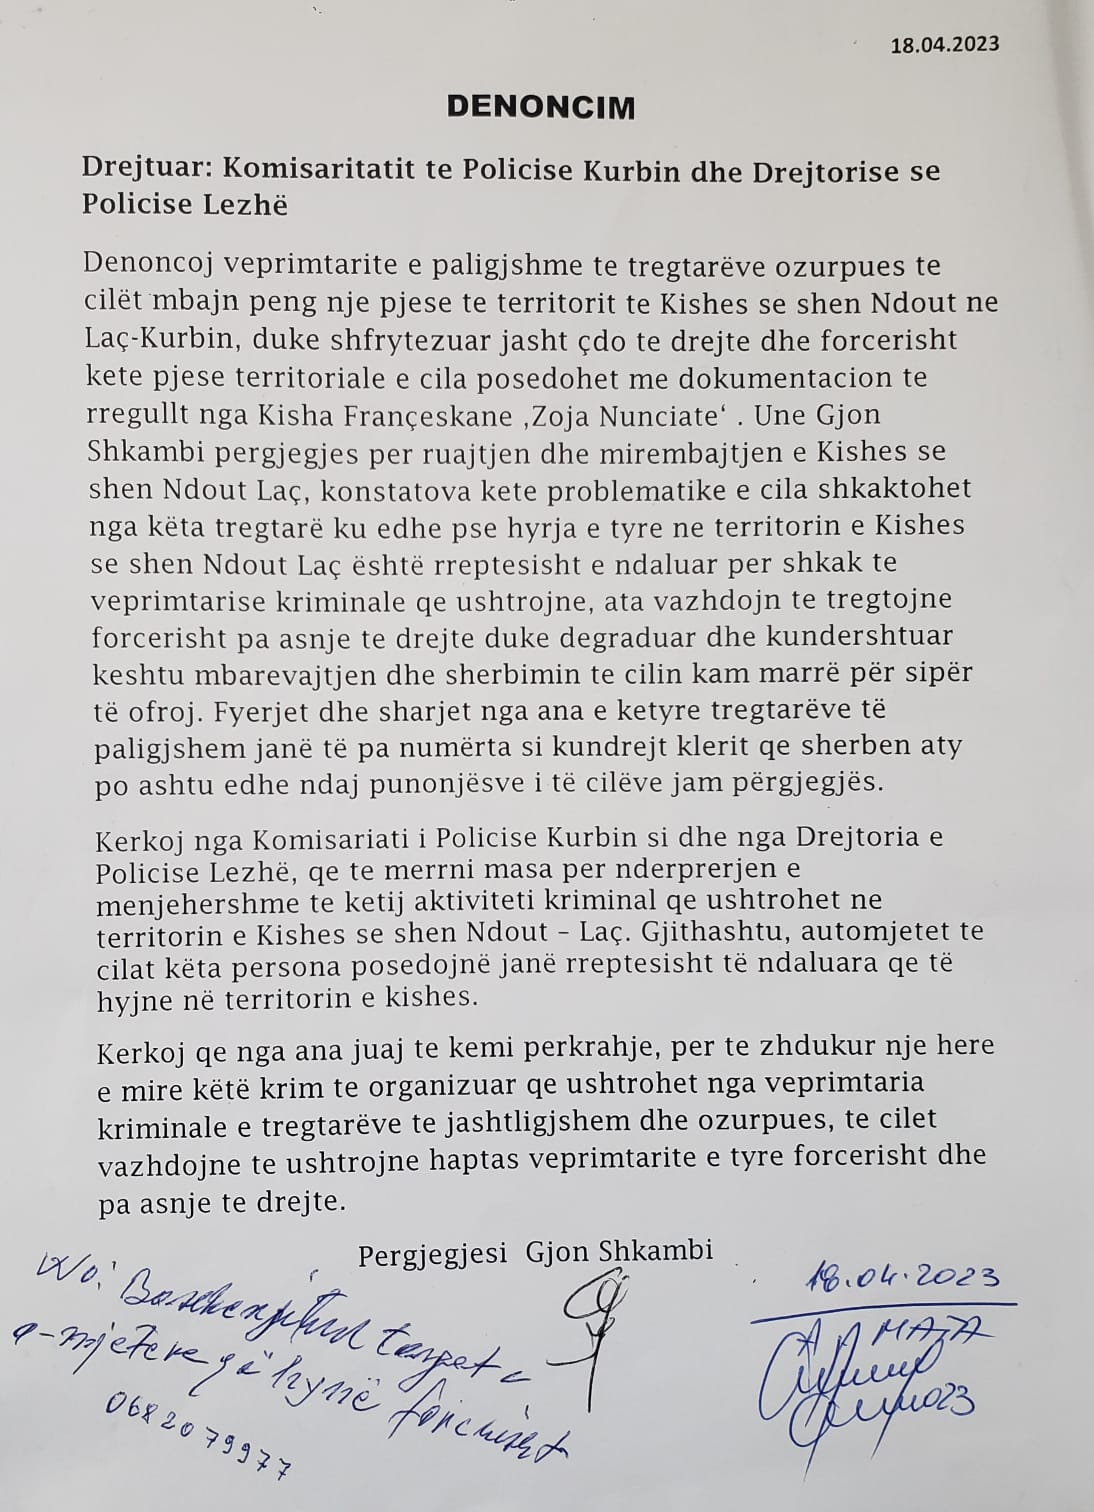 18.04.2023
DENONCIM
Drejtuar: Komisaritatit te Policise Kurbin dhe Drejtorise se
Policise Lezhë
Denoncoj veprimtarite e paligjshme te tregtarëve ozurpues te
cilët mbajn peng nje pjese te territorit te Kishes se shen Ndout ne
Laç-Kurbin, duke shfrytezuar jasht çdo te drejte dhe forcerisht
kete pjese territoriale e cila posedohet me dokumentacion te
rregullt nga Kisha Françeskane ‚Zoja Nunciate‘ . Une Gjon
Shkambi pergjegjes per ruajtjen dhe mirembajtjen e Kishes se
shen Ndout Laç, konstatova kete problematike e cila shkaktohet
nga këta tregtarë ku edhe pse hyrja e tyre ne territorin e Kishes
se shen Ndout Laç është rreptesisht e ndaluar per shkak te
veprimtarise kriminale qe ushtrojne, ata vazhdojn te tregtojne
forcerisht pa asnje te drejte duke degraduar dhe kundershtuar
keshtu mbarevajtjen dhe sherbimin te cilin kam marrë për sipër
të ofroj. Fyerjet dhe sharjet nga ana e ketyre tregtarëve të
paligjshem janë të pa numërta si kundrejt klerit qe sherben aty
po ashtu edhe ndaj punonjësve i të cilëve jam përgjegjës.
Kerkoj nga Komisariati i Policise Kurbin si dhe nga Drejtoria e
Policise Lezhë, qe te merrni masa per nderprerjen e
menjehershme te ketij aktiviteti kriminal qe ushtrohet ne
territorin e Kishes se shen Ndout – Laç. Gjithashtu, automjetet te
cilat këta persona posedojnë janë rreptesisht të ndaluara qe të
hyjne në territorin e kishes.
Kerkoj qe nga ana juaj te kemi perkrahje, per te zhdukur nje here
e mire këtë krim te organizuar qe ushtrohet nga veprimtaria
kriminale e tregtarëve te jashtligjshem dhe ozurpues, te cilet
vazhdojne te ushtrojne haptas veprimtarite e tyre forcerisht dhe
pa asnje te drejte.
Pergjegjesi Gjon Shkambi
18.04.2023
targat e
a-mjeteve që hynë forcerisht
MATA
0682079977